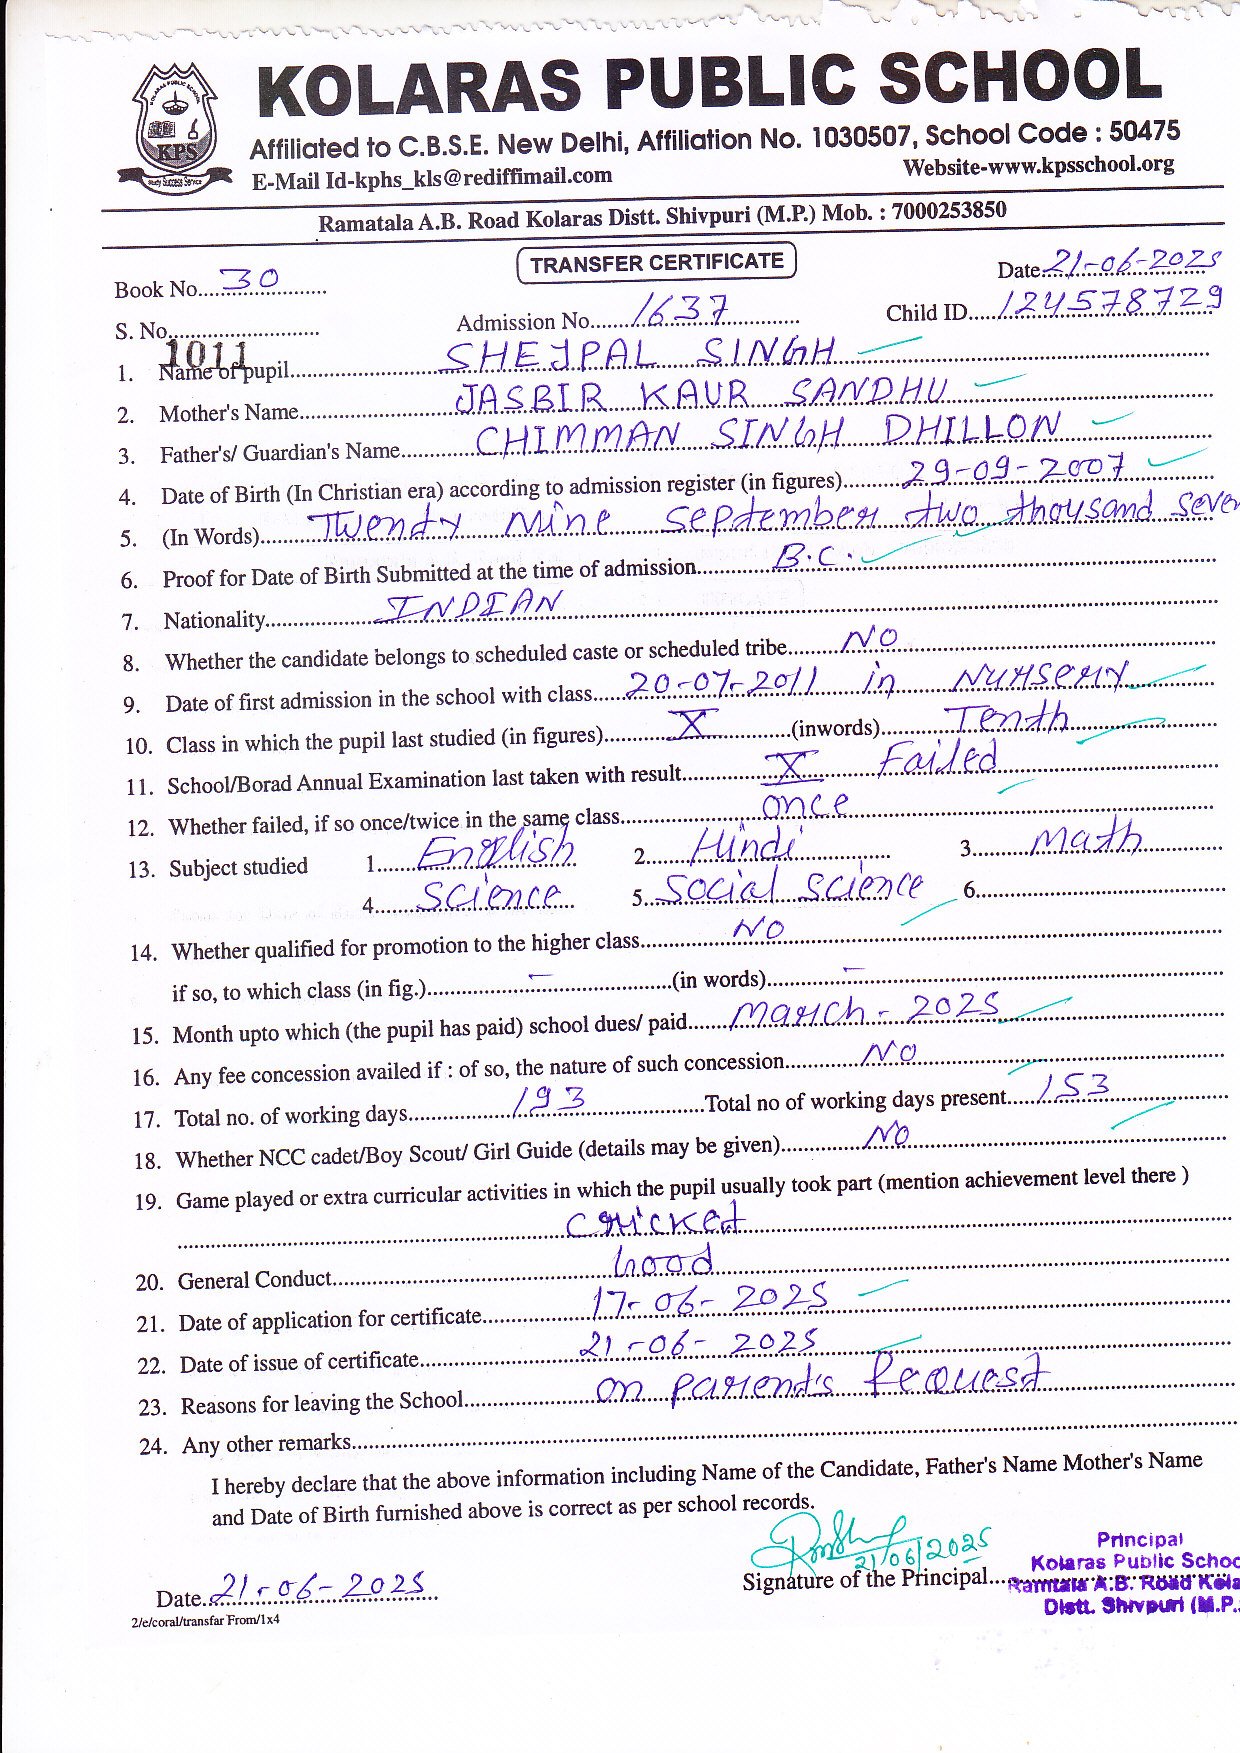 KOLARAS PUBLIC SCHOOL
KPS
Study Success Service
Affiliated to C.B.S.E. New Delhi, Affiliation No. 1030507, School Code : 50475
E-Mail Id-kphs_kls@rediffimail.com Website-www.kpsschool.org
Ramatala A.B. Road Kolaras Distt. Shivpuri (M.P.) Mob. : 7000253850
TRANSFER CERTIFICATE
Book No. 30 Date 21-06-2025
S. No. 1011 Admission No. 1637 Child ID 124578729
1. Name of pupil SHEJPAL SINGH
2. Mother's Name JASBIR KAUR SANDHU
3. Father's/ Guardian's Name CHIMMAN SINGH DHILLON
4. Date of Birth (In Christian era) according to admission register (in figures) 29-09-2007
5. (In Words) Twenty Nine September two thousand seven
6. Proof for Date of Birth Submitted at the time of admission B.C.
7. Nationality INDIAN
8. Whether the candidate belongs to scheduled caste or scheduled tribe NO
9. Date of first admission in the school with class 20-07-2011 in Nursery
10. Class in which the pupil last studied (in figures) X (inwords) Tenth
11. School/Borad Annual Examination last taken with result X Failed
12. Whether failed, if so once/twice in the same class once
13. Subject studied 1. English 2. Hindi 3. Math
4. Science 5. Social Science 6.
14. Whether qualified for promotion to the higher class NO
if so, to which class (in fig.) – (in words) –
15. Month upto which (the pupil has paid) school dues/ paid March - 2025
16. Any fee concession availed if : of so, the nature of such concession NO
17. Total no. of working days 193 Total no of working days present 153
18. Whether NCC cadet/Boy Scout/ Girl Guide (details may be given) NO
19. Game played or extra curricular activities in which the pupil usually took part (mention achievement level there )
Cricket
20. General Conduct Good
21. Date of application for certificate 17-06-2025
22. Date of issue of certificate 21-06-2025
23. Reasons for leaving the School on parent's Request
24. Any other remarks
I hereby declare that the above information including Name of the Candidate, Father's Name Mother's Name
and Date of Birth furnished above is correct as per school records.
21/06/2025
Date. 21-06-2025 Signature of the Principal
Principal
Kolaras Public Schoo
Ramtala A.B. Road Kola
Distt. Shivpuri (M.P.
2/e/coral/transfar From/1x4